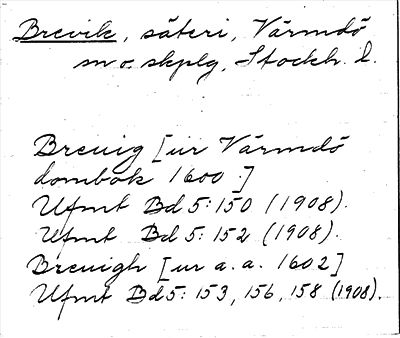 Brevik, säteri, Värmdö
sn o. skplg, Stockh. l.
Breuig [ur Värmdö
dombok 1600.]
Ufmt Bd 5: 150 (1908).
Ufmt Bd 5: 152 (1908).
Breuigh [ur a.a. 1602]
Ufmt Bd 5: 153, 156, 158 (1908).